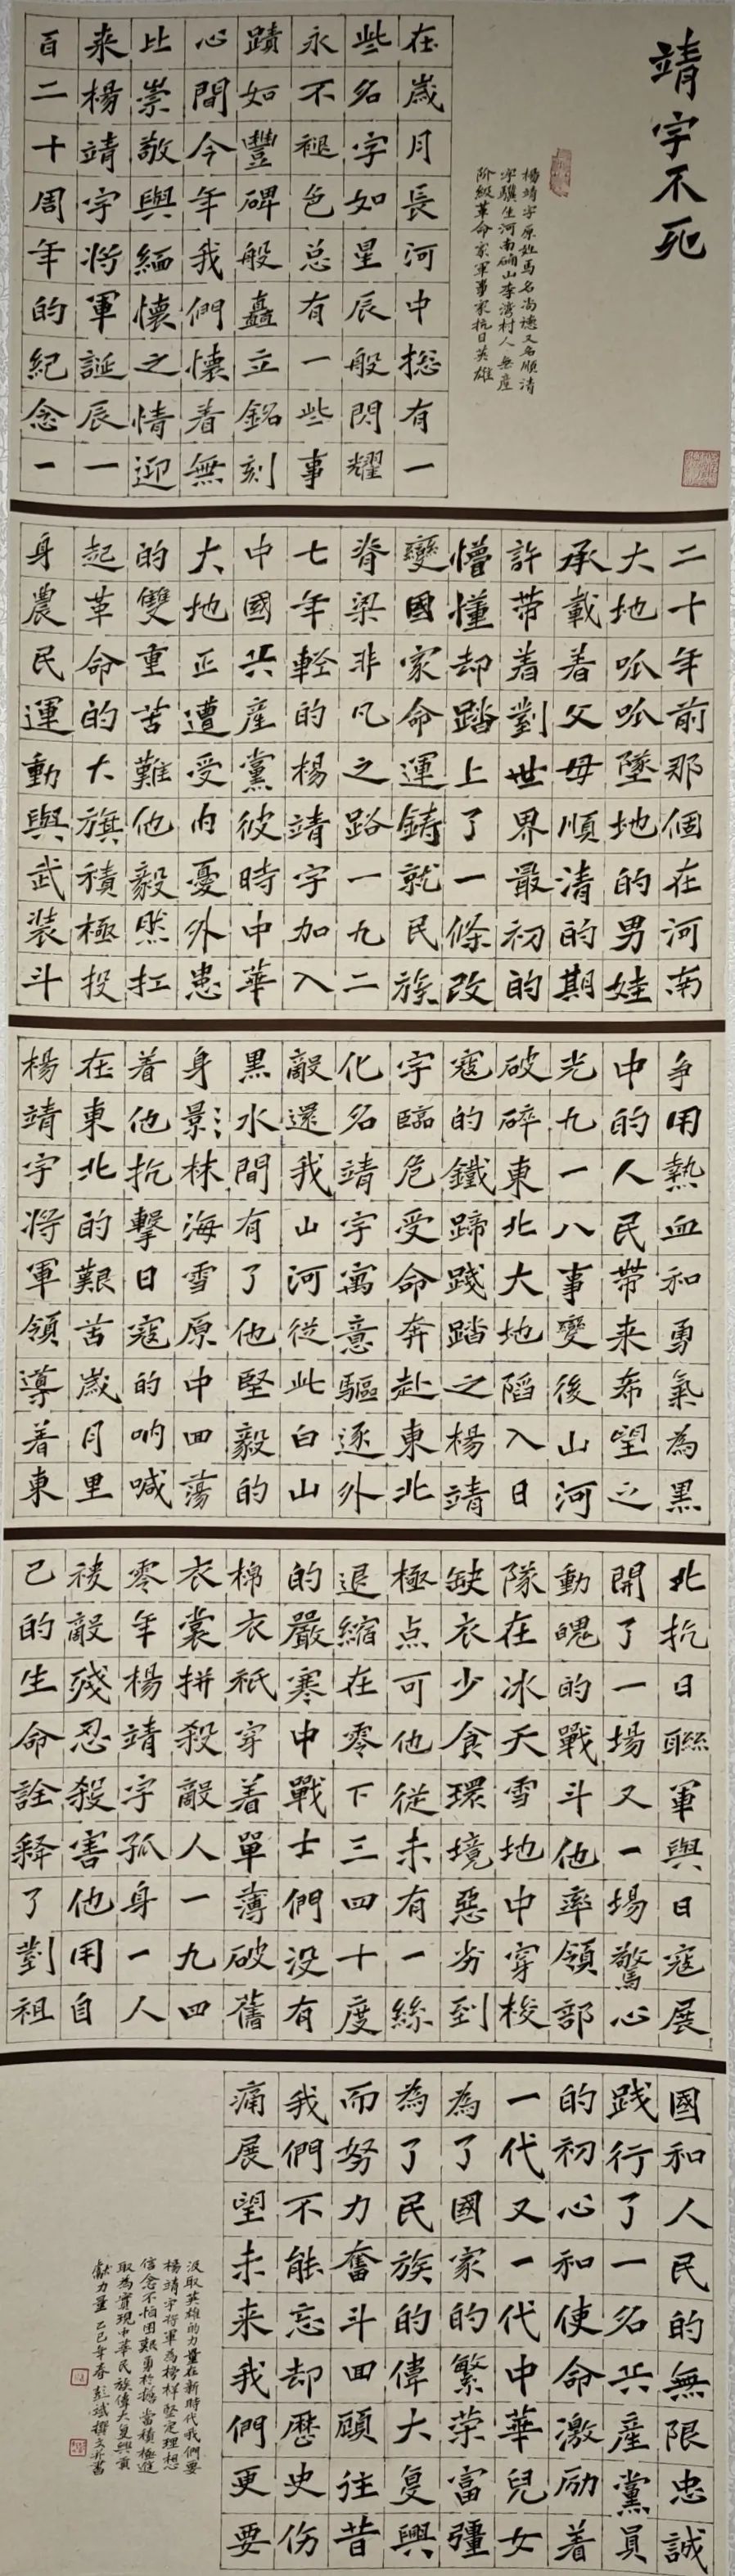 靖宇不死
楊靖宇原姓馬名尚德又名順清
字驥生河南确山李湾村人無產
阶級革命家軍事家抗日英雄
在歲月長河中総有一
些名字如星辰般閃耀
永不褪色总有一些事
蹟如豐碑般矗立銘刻
心間今年我們懷着無
比崇敬與緬懷之情迎
来楊靖宇將軍誕辰一
百二十周年的紀念一
二十年前那個在河南
大地呱呱墜地的男娃
承載着父母順清的期
許带着對世界最初的
懵懂却踏上了一條改
變國家命運鋳就民族
脊梁非凡之路一九二
七年輕的楊靖宇加入
中國共產黨彼時中華
大地正遭受内憂外患
的雙重苦難他毅然扛
起革命的大旗積極投
身農民運動與武装斗
争用熱血和勇氣為黑
中的人民带来希望之
光九一八事變後山河
破碎東北大地陷入日
寇的鐵蹄踐踏之楊靖
宇臨危受命奔赴東北
化名靖宇寓意驅逐外
敵還我山河從此白山
黑水間有了他堅毅的
身影林海雪原中回蕩
着他抗擊日寇的呐喊
在東北的艱苦歲月里
楊靖宇將軍領導着東
北抗日聯軍與日寇展
開了一場又一場驚心
動魄的戰斗他率領部
隊在冰天雪地中穿梭
缺衣少食環境惡劣到
極点可他從未有一絲
退縮在零下三四十度
的嚴寒中戰士們没有
棉衣衹穿着單薄破舊
衣裳拼殺敵人一九四
零年楊靖宇孤身一人
被敵殘忍殺害他用自
己的生命詮释了對祖
國和人民的無限忠誠
践行了一名共產黨員
的初心和使命激励着
一代又一代中華兒女
為了國家的繁荣富疆
為了民族的偉大复興
而努力奮斗回顧往昔
我們不能忘却歷史伤
痛展望未来我們更要
汲取英雄的力量在新時代我們要
楊靖宇将軍為榜样堅定理想
信念不怕困難勇於担當積極進
取為實現中華民族偉大复興貢
獻力量 乙巳年春 彭斌撰文并書